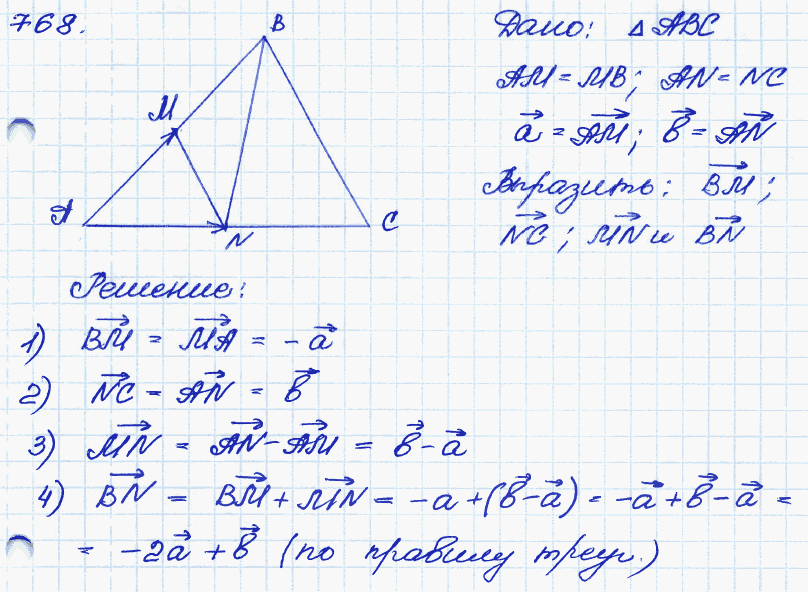 768.
B
M
A
N
C
Дано: △ ABC
AM = MB; AN = NC
a⃗ = AM⃗; b⃗ = AN⃗
Выразить: BM⃗;
NC⃗; MN⃗ и BN⃗
Решение:
1) BM⃗ = MA⃗ = - a⃗
2) NC⃗ = AN⃗ = b⃗
3) MN⃗ = AN⃗ - AM⃗ = b⃗ - a⃗
4) BN⃗ = BM⃗ + MN⃗ = -a + (b⃗ - a⃗) = -a⃗ + b⃗ - a⃗ =
= -2a⃗ + b⃗ (по правилу треуг.)